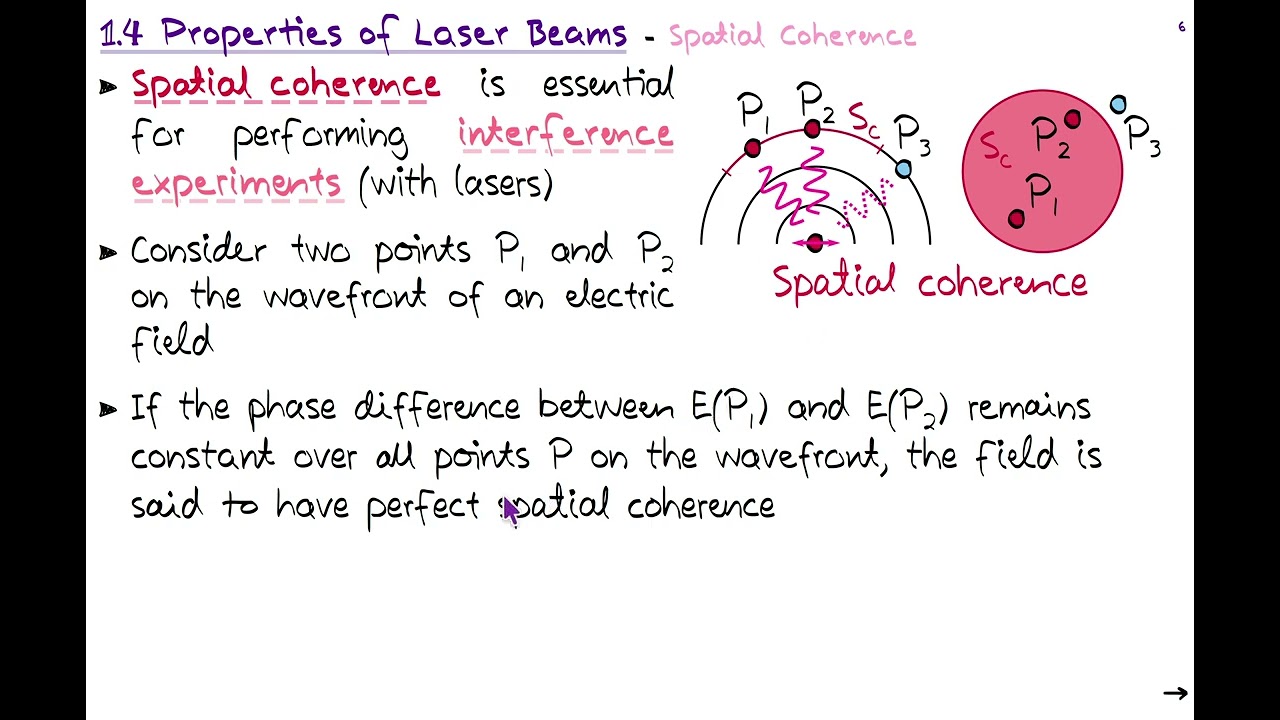 1.4 Properties of Laser Beams - Spatial Coherence
6
➤ Spatial coherence is essential
for performing interference
experiments (with lasers)
➤ Consider two points P₁ and P₂
on the wavefront of an electric
field
➤ If the phase difference between E(P₁) and E(P₂) remains
constant over all points P on the wavefront, the field is
said to have perfect spatial coherence
P₁ P₂ Sc P₃
Sc P₂ P₃
P₁
Spatial coherence
→